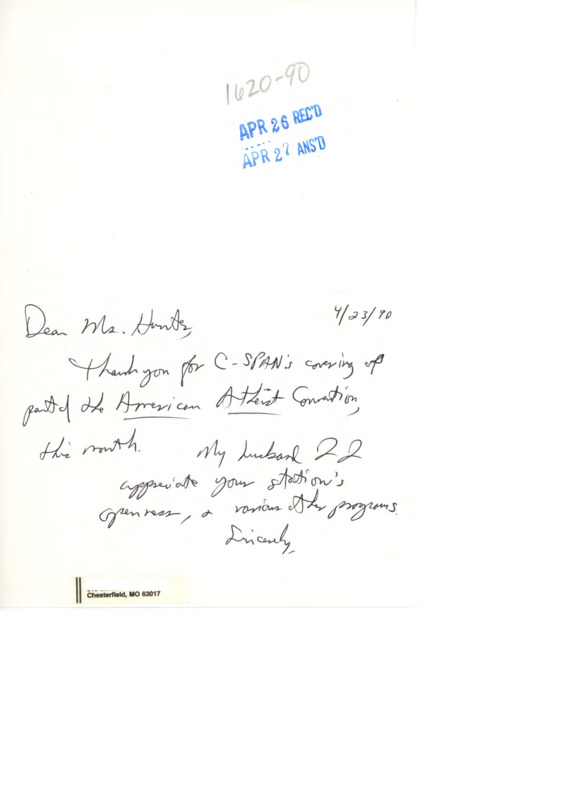 1620-90
APR 26 REC'D
APR 27 ANS'D
4/23/90
Dear Ms. Hunter,
Thank you for C-SPAN's covering of
part of the American Atheist Convention,
this month. My husband & I
appreciate your station's
openness, & various other programs.
Sincerely,
Chesterfield, MO 63017